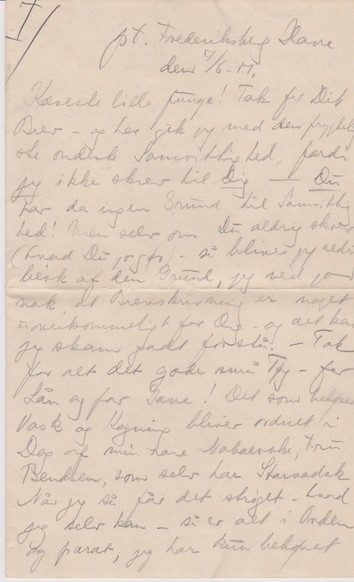 pt. Frederiksberg Have
den 7/6. 17.
Kæreste lille Junge! Tak for Dit
Brev – og her gik jeg med den frygtelig-
ste onde Samvittighed, fordi
jeg ikke skrev til Dig – Du
har da ingen Grund til Samvittig
hed! Men selv om Du aldrig skrev
(hvad Du jo gør) – så bliver jeg aldrig
af den Grund, jeg ved jo
nok, at Brevskrivning er noget
uoverkommeligt for Dig – og det kan
jeg skam godt forstå. – Tak
for alt det gode små Tøj – for
Lån og for Gave! Det som behøver
Vask og Kogning bliver ordnet i
Dag af min rare Fru
Bendsen, som selv har
Når jeg så får det strøget – hvad
jeg selv kan – så er alt i Orden
og parat, jeg har kun behøvet